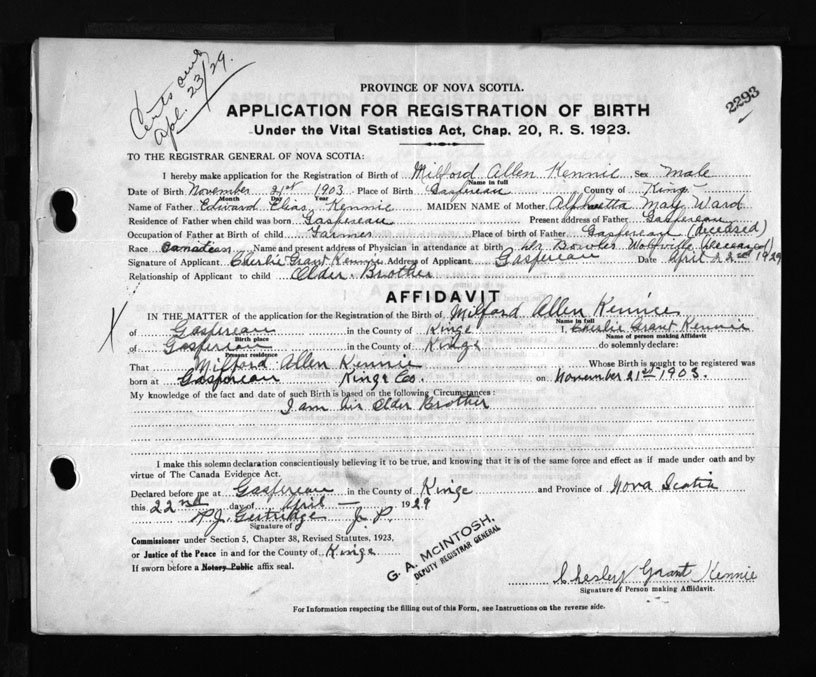 Certs our
Apl. 23/29.
2293
PROVINCE OF NOVA SCOTIA.
APPLICATION FOR REGISTRATION OF BIRTH
Under the Vital Statistics Act, Chap. 20, R. S. 1923.
TO THE REGISTRAR GENERAL OF NOVA SCOTIA:
I hereby make application for the Registration of Birth of Milford Allen Kennie Sex Male
Name in full
Date of Birth November 21st 1903 Place of Birth Gaspereau County of Kings
Month Day Year
Name of Father Edward Elias Kennie MAIDEN NAME of Mother May Ward
Residence of Father when child was born Gaspereau Present address of Father Gaspereau
Occupation of Father at Birth of child Farmer Place of birth of Father Gaspereau (deceased)
Race Canadian Name and present address of Physician in attendance at birth Dr. Bowles Wolfville (deceased)
Signature of Applicant Cheslie Grant Kennie Address of Applicant Gaspereau Date April 22nd 1929
Relationship of Applicant to child Older Brother
AFFIDAVIT
X
IN THE MATTER of the application for the Registration of the Birth of Milford Allen Kennie
Name in full
of Gaspereau in the County of Kings I, Cheslie Grant Kennie
Birth place Name of person making Affidavit
of Gaspereau in the County of Kings do solemnly declare:
Present residence
That Milford Allen Kennie Whose Birth is sought to be registered was
born at Gaspereau Kings Co. on November 21st 1903.
My knowledge of the fact and date of such Birth is based on the following Circumstances:
I am his Older Brother
I make this solemn declaration conscientiously believing it to be true, and knowing that it is of the same force and effect as if made under oath and by
virtue of The Canada Evidence Act.
Declared before me at Gaspereau in the County of Kings and Province of Nova Scotia
this 22nd day of April 1929
P.J. Gertridge J. P.
Signature of
Commissioner under Section 5, Chapter 38, Revised Statutes, 1923,
or Justice of the Peace in and for the County of Kings
If sworn before a Notary Public affix seal.
G. A. McINTOSH,
DEPUTY REGISTRAR GENERAL
Chesley Grant Kennie
Signature of Person making Affidavit.
For Information respecting the filling out of this Form, see Instructions on the reverse side.